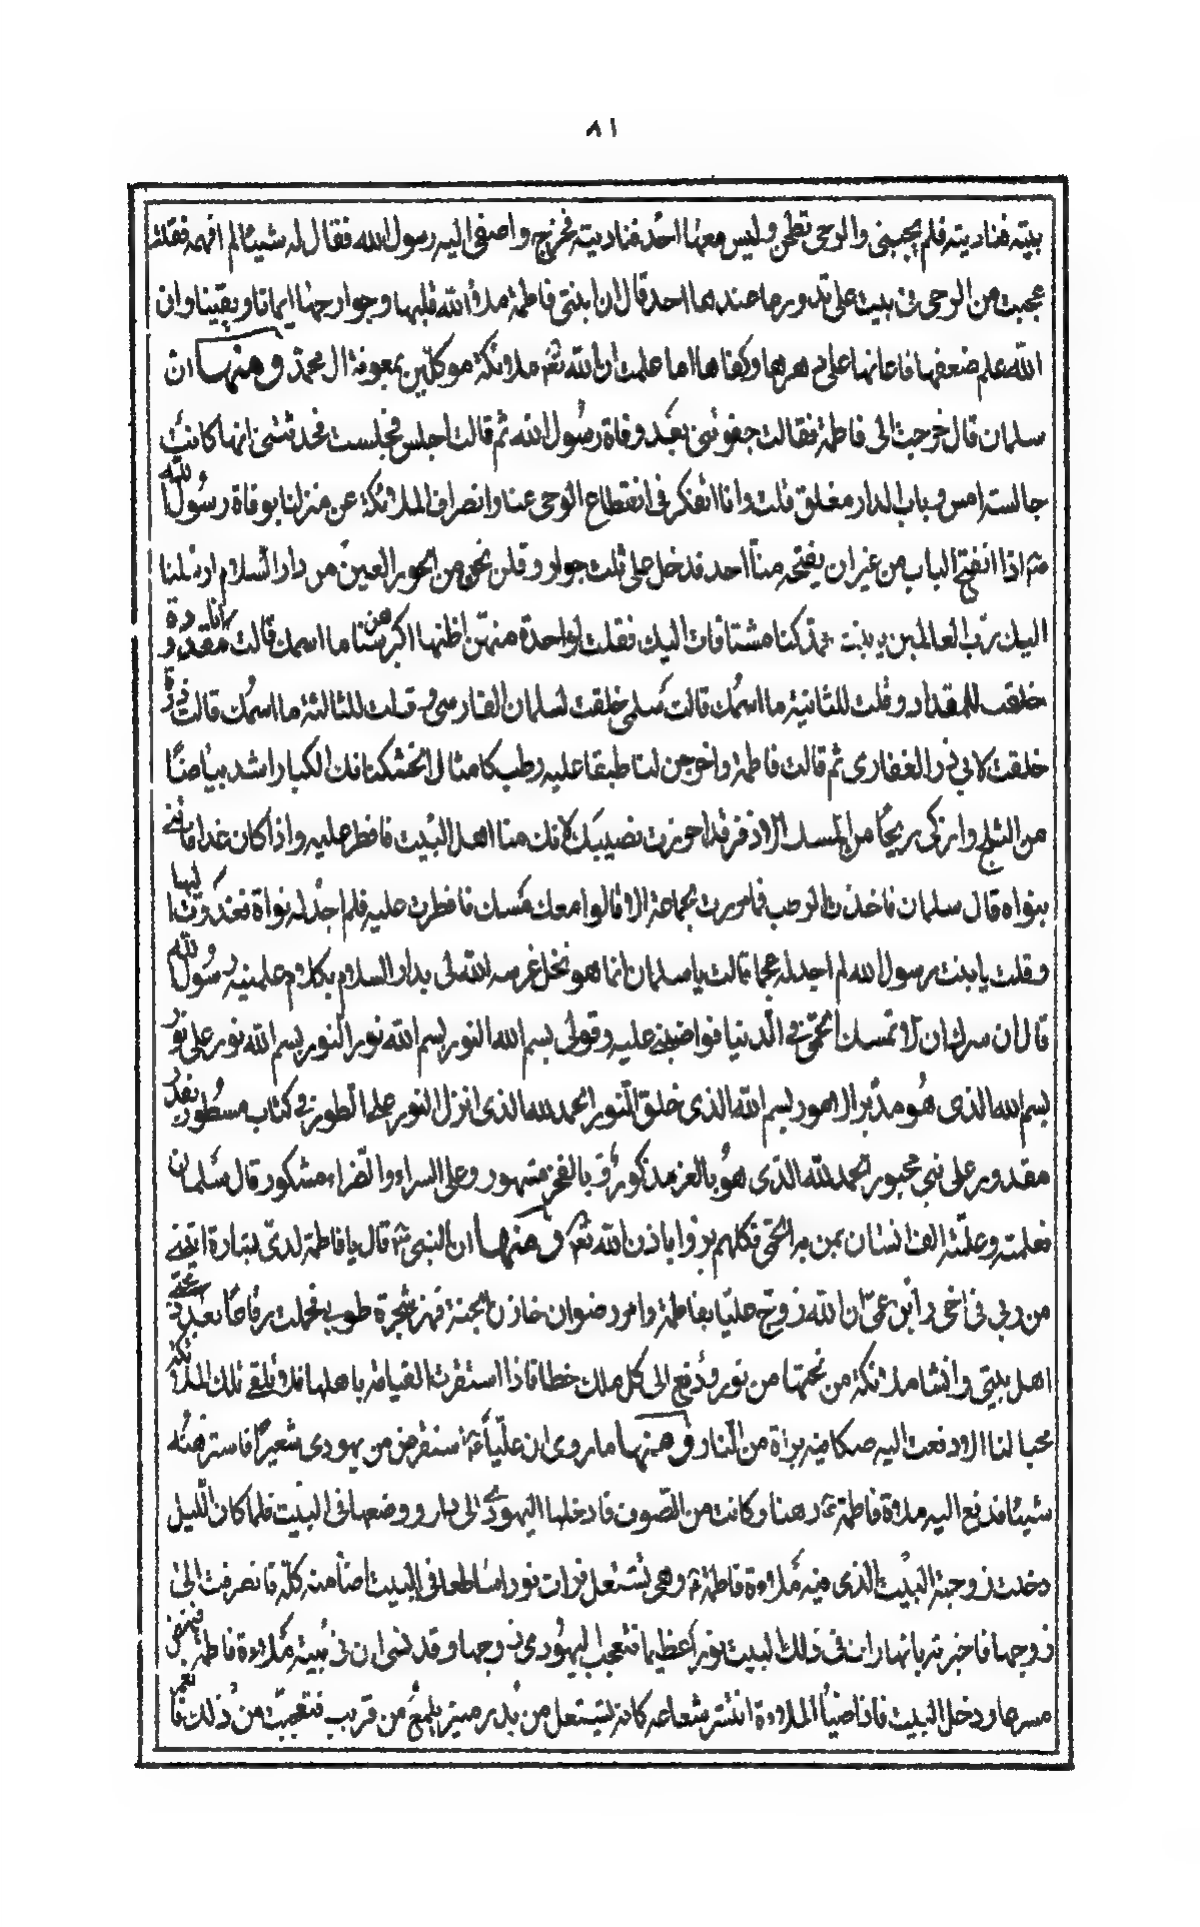 ٨١
بيته فناديته فلم يجبني والرحى تطحن وليس معها احد فناديته فخرج واصغى اليه رسول الله فقال له شيئا لم افهمه فقلت
عجبت من الرحى في بيت علي تدور ما عندها احد قال ان ابنتي فاطمة ملأ الله قلبها وجوارحها ايمانا ويقينا وان
الله علم ضعفها فاعانها على دهرها وكفاها اما علمت ان لله تع ملائكة موكلين بمعونة ال محمد ومنها ان
سلمان قال خرجت الى فاطمة فقالت جفوتني بعد وفاة رسول الله ثم قالت اجلس فجلست فحدثتني انها كانت
جالسة امس وباب الدار مغلق قلت وانا اتفكر في انقطاع الوحي عنا وانصراف الملائكة عن منزلنا بوفاة رسول الله
ص اذا انفتح الباب من غير ان يفتحه منا احد فدخل علي ثلث جوار وقلن نحن من الحور العين من دار السلام ارسلنا
اليك رب العالمين يا بنت محمد كنا مشتاقات اليك فقلت لواحدة منهن اظنها اكبرهن سنا ما اسمك قالت انا مقدودة
خلقت للمقداد وقلت للثانية ما اسمك قالت سلمى خلقت لسلمان الفارسي وقلت للثالثة ما اسمك قالت ذرة
خلقت لابي ذر الغفاري ثم قالت فاطمة واخرجن لنا طبقا عليه رطب كامثال الخشكنانك الكبار اشد بياضا
من الثلج وازكى ريحا من المسك الاذفر قد احرزت نصيبك لانك منا اهل البيت فافطر عليه واذا كان غدا فأتني
بنواه قال سلمان فاخذت الرطب فما مررت بجماعة الا قالوا معك مسك فافطرت عليه فلم اجد له نواة فغدوت اليها
وقلت يا بنت رسول الله لم اجد له عجما قالت يا سلمان انما هو نخل غرسه الله لي بدار السلام بكلام علمنيه رسول الله
قال ان سرك ان لا تمسك الحمى في الدنيا فواظبي عليه وقولي بسم الله النور بسم الله نور النور بسم الله نور على نور
بسم الله الذي هو مدبر الامور بسم الله الذي خلق النور الحمد لله الذي انزل النور على الطور في كتاب مسطور بقدر
مقدور على نبي محبور الحمد لله الذي هو بالعز مذكور وبالفخر مشهور وعلى السراء والضراء مشكور قال سلمان
فعلمته وعلمته الف انسان ممن به الحمى فكلهم برؤا باذن الله تع ومنها ان النبي ص قال يا فاطمة لدي بشارة اتتني
من ربي في اخي وابن عمي ان الله زوج عليا بفاطمة وامر رضوان خازن الجنة فهز شجرة طوبى فحملت رقاقا بعدد محبي
اهل بيتي وانشا ملائكة من تحتها من نور ودفع الى كل ملك خطا فاذا استقرت القيامة باهلها فلا تلقى تلك الملائكة
محبا لنا الا دفعت اليه صكا فيه براة من النار ومنها ما روي ان عليا ع استقرض من يهودي شعيرا فاسترهنه
شيئا فدفع اليه ملاءة فاطمة ع رهنا وكانت من الصوف فادخلها اليهودي الى دار ووضعها في البيت فلما كان الليل
دخلت زوجة البيت الذي فيه ملاءة فاطمة ع وهي يشتعل فرات نورا ساطعا في البيت اضأ منه كله فانصرفت الى
زوجها فاخبرته بانها رات في ذلك البيت نورا عظيما فتعجب اليهودي زوجها وقد نسي ان في بيته ملاءة فاطمة فنهض
مسرعا ودخل البيت فاذا ضياء الملاءة انتشر شعاعه كانه يشتعل من بدر منير يلمع من قريب فتعجب من ذلك فانعم